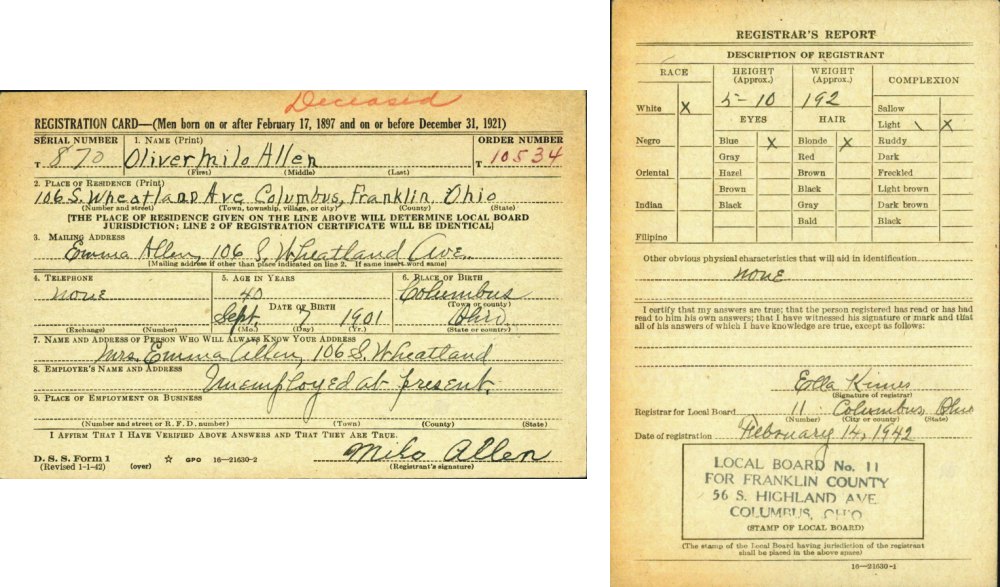 Deceased
REGISTRATION CARD—(Men born on or after February 17, 1897 and on or before December 31, 1921)
SERIAL NUMBER 1. NAME (Print) ORDER NUMBER
T 870 Oliver Milo Allen T 10534
(First) (Middle) (Last)
2. PLACE OF RESIDENCE (Print)
106 S. Wheatland Ave Columbus, Franklin, Ohio
(Number and street) (Town, township, village, or city) (County) (State)
[THE PLACE OF RESIDENCE GIVEN ON THE LINE ABOVE WILL DETERMINE LOCAL BOARD
JURISDICTION; LINE 2 OF REGISTRATION CERTIFICATE WILL BE IDENTICAL]
3. MAILING ADDRESS
Emma Allen, 106 S. Wheatland Ave.
(Mailing address if other than place indicated on line 2. If same insert word same)
4. TELEPHONE 5. AGE IN YEARS 6. PLACE OF BIRTH
none 40 Columbus
DATE OF BIRTH (Town or county)
Sept. 7 1901 Ohio
(Exchange) (Number) (Mo.) (Day) (Yr.) (State or country)
7. NAME AND ADDRESS OF PERSON WHO WILL ALWAYS KNOW YOUR ADDRESS
Mrs. Emma Allen, 106 S. Wheatland
8. EMPLOYER'S NAME AND ADDRESS
Unemployed at present.
9. PLACE OF EMPLOYMENT OR BUSINESS
(Number and street or R. F. D. number) (Town) (County) (State)
I AFFIRM THAT I HAVE VERIFIED ABOVE ANSWERS AND THAT THEY ARE TRUE.
D. S. S. Form 1
(Revised 1-1-42) (over) ☆ GPO 16—21630-2 Milo Allen
(Registrant's signature)
REGISTRAR'S REPORT
DESCRIPTION OF REGISTRANT
RACE HEIGHT (Approx.) WEIGHT (Approx.) COMPLEXION
White X 5-10 192 Sallow
EYES HAIR Light \ X
Negro Blue X Blonde X Ruddy
Gray Red Dark
Oriental Hazel Brown Freckled
Brown Black Light brown
Indian Black Gray Dark brown
Bald Black
Filipino
Other obvious physical characteristics that will aid in identification
none
I certify that my answers are true; that the person registered has read or has had
read to him his own answers; that I have witnessed his signature or mark and that
all of his answers of which I have knowledge are true, except as follows:
Ella Kimes
(Signature of registrar)
Registrar for Local Board 11 Columbus Ohio
(Number) (City or county) (State)
Date of registration Febouary 14, 1942
LOCAL BOARD No. 11
FOR FRANKLIN COUNTY
56 S. HIGHLAND AVE
COLUMBUS, OHIO
(STAMP OF LOCAL BOARD)
(The stamp of the Local Board having jurisdiction of the registrant
shall be placed in the above space)
16—21630-1